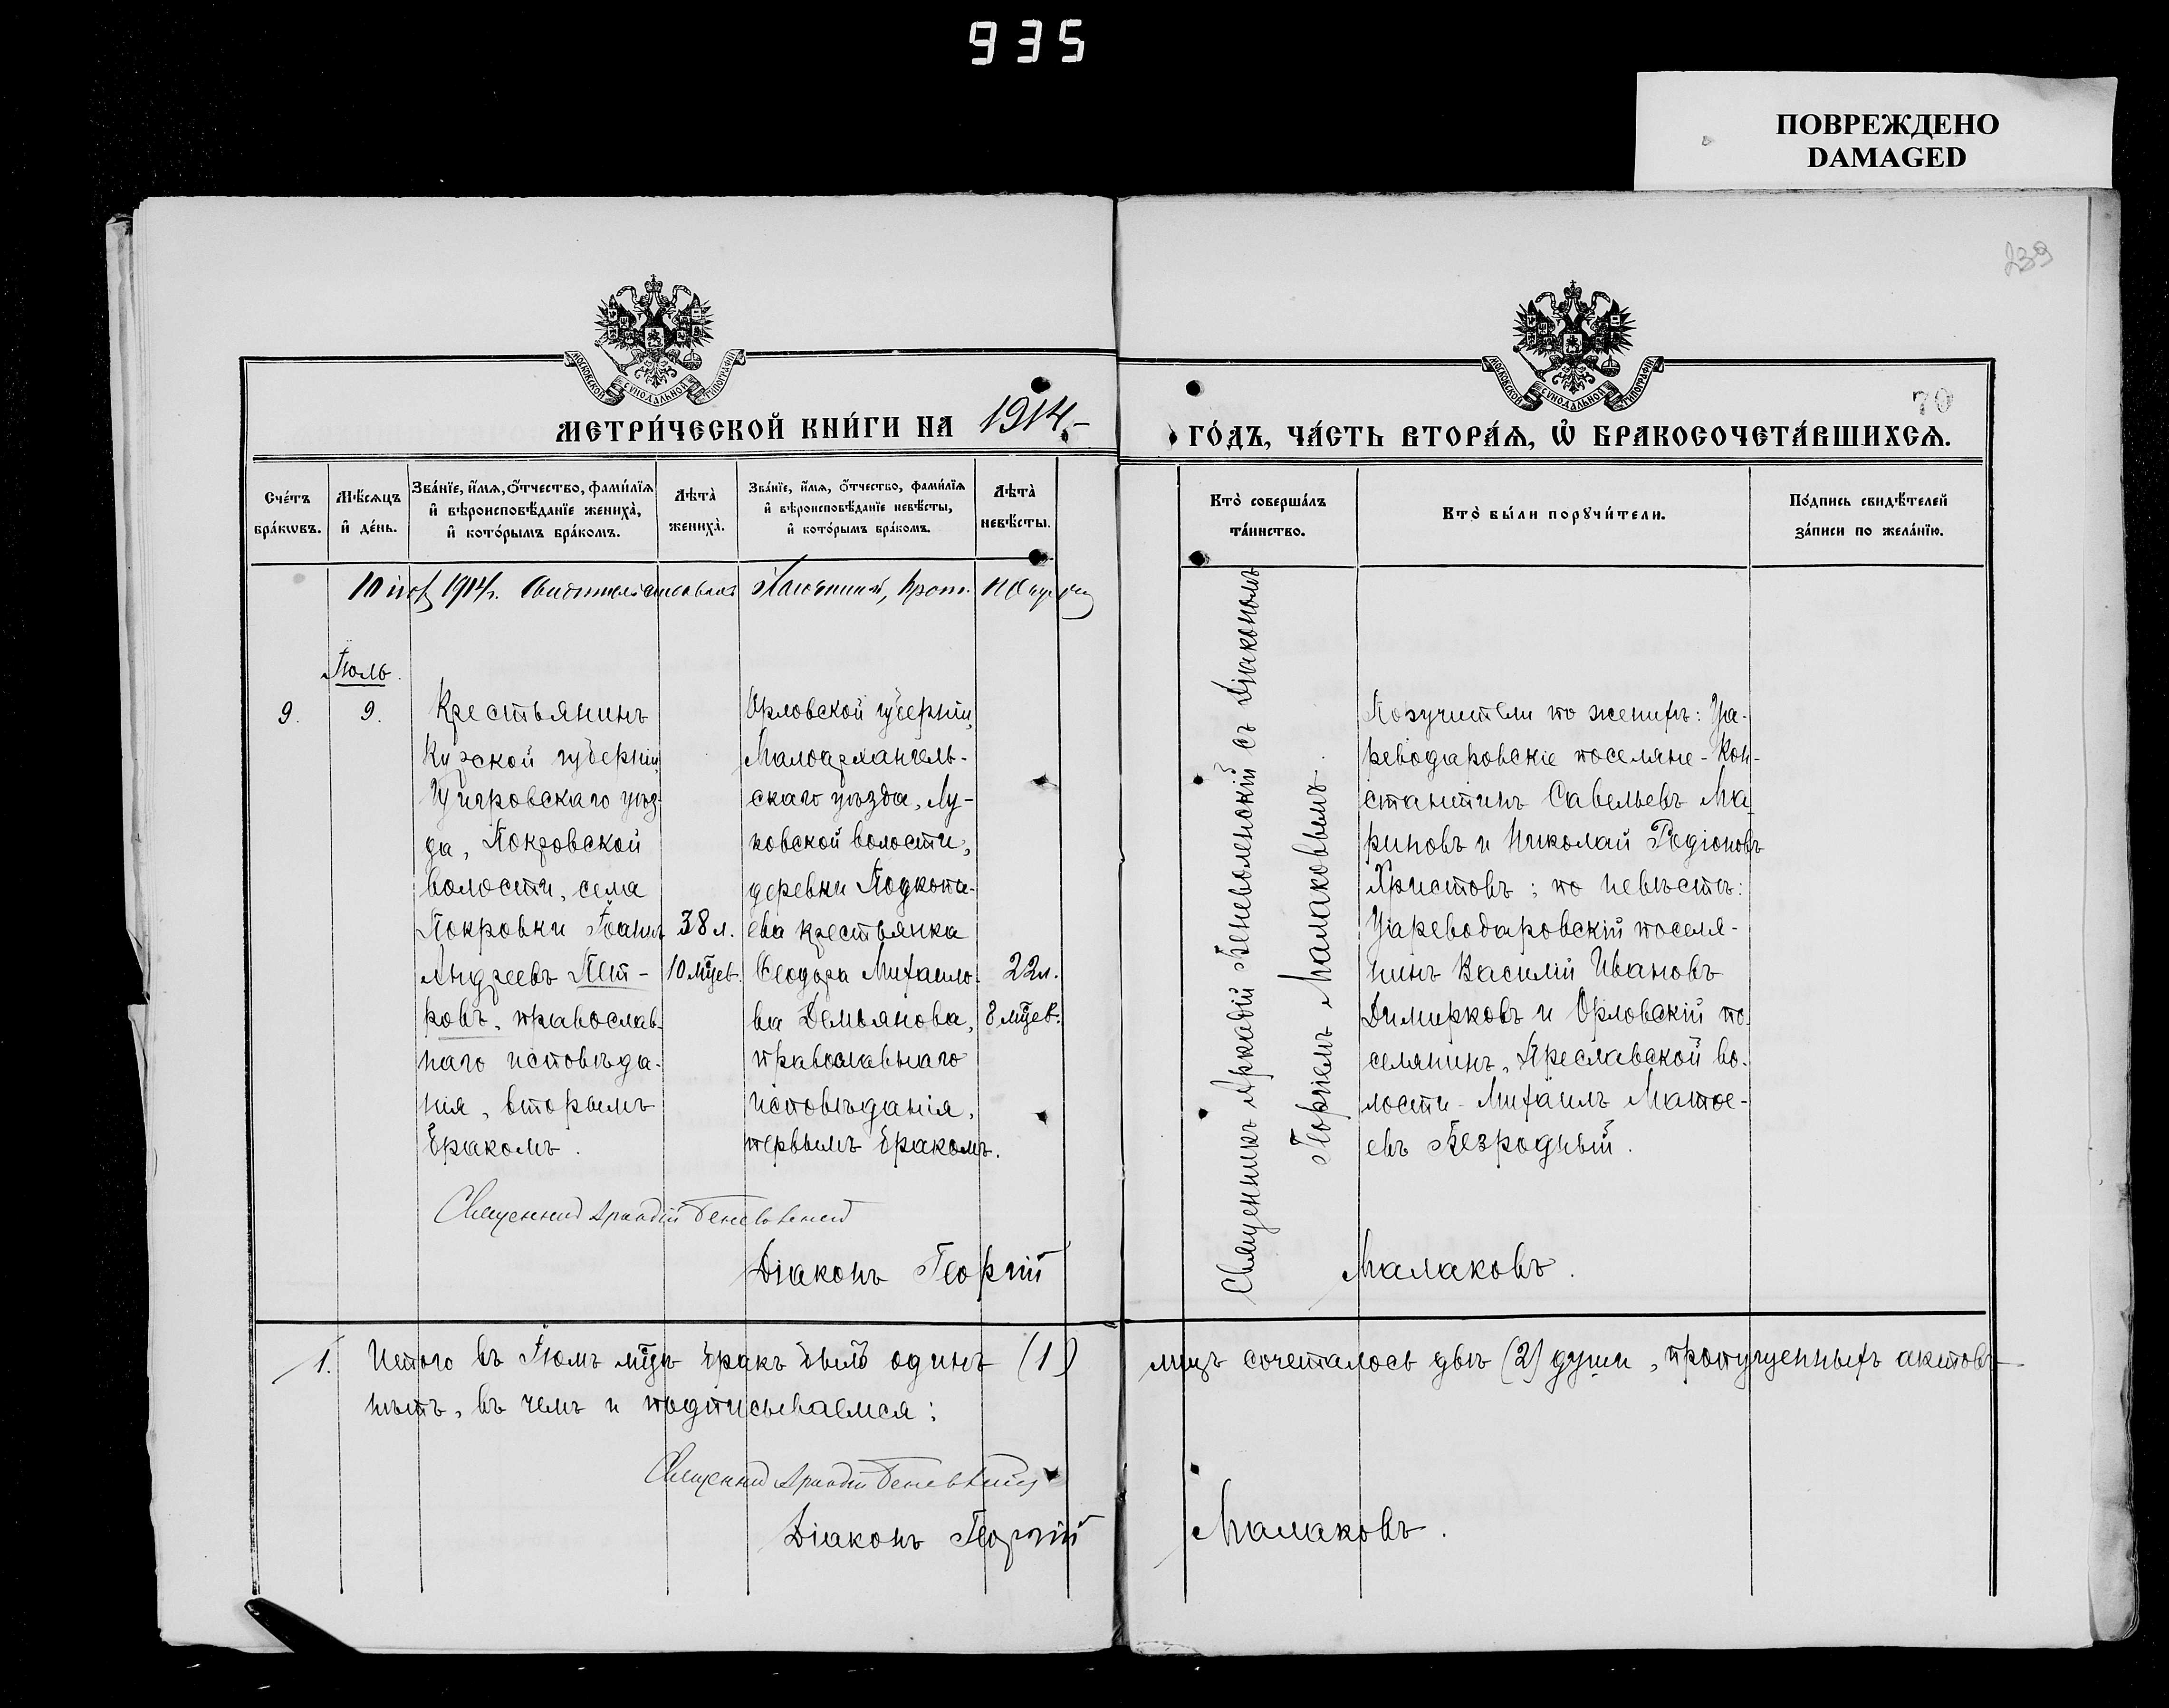 935
ПОВРЕЖДЕНО
DAMAGED
239
МОСКОВСКОЙ СѴНОДАЛЬНОЙ ТИПОГРАФІИ
МОСКОВСКОЙ СѴНОДАЛЬНОЙ ТИПОГРАФІИ
70
МЕТРИ́ЧЕСКОЙ КНИ́ГИ НА 1914.-
ГО́ДЪ, ЧА́СТЬ ВТОРА́Ѧ, Ѡ҆ БРАКОСОЧЕТА́ВШИХСѦ.
Сче́тъ
бра́кѡвъ.
Мѣ́сѧцъ
и҆ де́нь.
Зва́нїе, и҆́мѧ, ѻ҆́тчество, фами́лїѧ
и҆ вѣроисповѣ́данїе жениха̀,
и҆ кото́рымъ бра́комъ.
Лѣта̀
жениха̀.
Зва́нїе, и҆́мѧ, ѻ҆́тчество, фами́лїѧ
и҆ вѣроисповѣ́данїе невѣ́сты,
и҆ кото́рымъ бра́комъ.
Лѣта̀
невѣ́сты.
Кто̀ соверша́лъ
та́инство.
Кто̀ бы́ли порꙋчи́тели.
По́дпись свидѣ́телей
за́писи по жела́нїю.
1914г. Свидѣтельствовалъ Прот.
Іюль.
9.
9.
Крестьянинъ
Курской губерніи,
Щигровскаго уѣз-
да, Покровской
волости, села
Покровки Іоаннъ
Андреевъ Пет-
ровъ, православ-
наго исповѣда-
нія, вторымъ
бракомъ.
38 л.
10 мцев.
Орловской губерніи,
Малоархангель-
скаго уѣзда, Лу-
ковской волости,
деревни Подкопа-
ева крестьянка
Ѳеодора Михаило-
ва Демьянова,
православнаго
исповѣданія,
первымъ бракомъ.
22 л.
8 мцев.
Священникъ Аркадій Беневоленскій съ Діакономъ
Георгіемъ Малаковымъ.
Поручители по женихѣ: Ца-
реводаровскіе поселяне - Кон-
стантинъ Савельевъ Ма-
риновъ и Николай Родіоновъ
Христовъ; по невѣстѣ:
Цареводаровскій поселя-
нинъ Василій Ивановъ
Димирковъ и Орловскій по-
селянинъ, Преславской во-
лости - Михаилъ Матѳе-
евъ Безродный.
Священникъ Аркадій Беневоленскій
Діаконъ Георгій Малаковъ.
1. Итого въ Іюлѣ мцѣ бракъ былъ одинъ (1) лицъ сочеталось двѣ (2) души, пропущенныхъ актовъ
нѣтъ, въ чемъ и подписываемся:
Священникъ Аркадій Беневоленскій
Діаконъ Георгій Малаковъ.